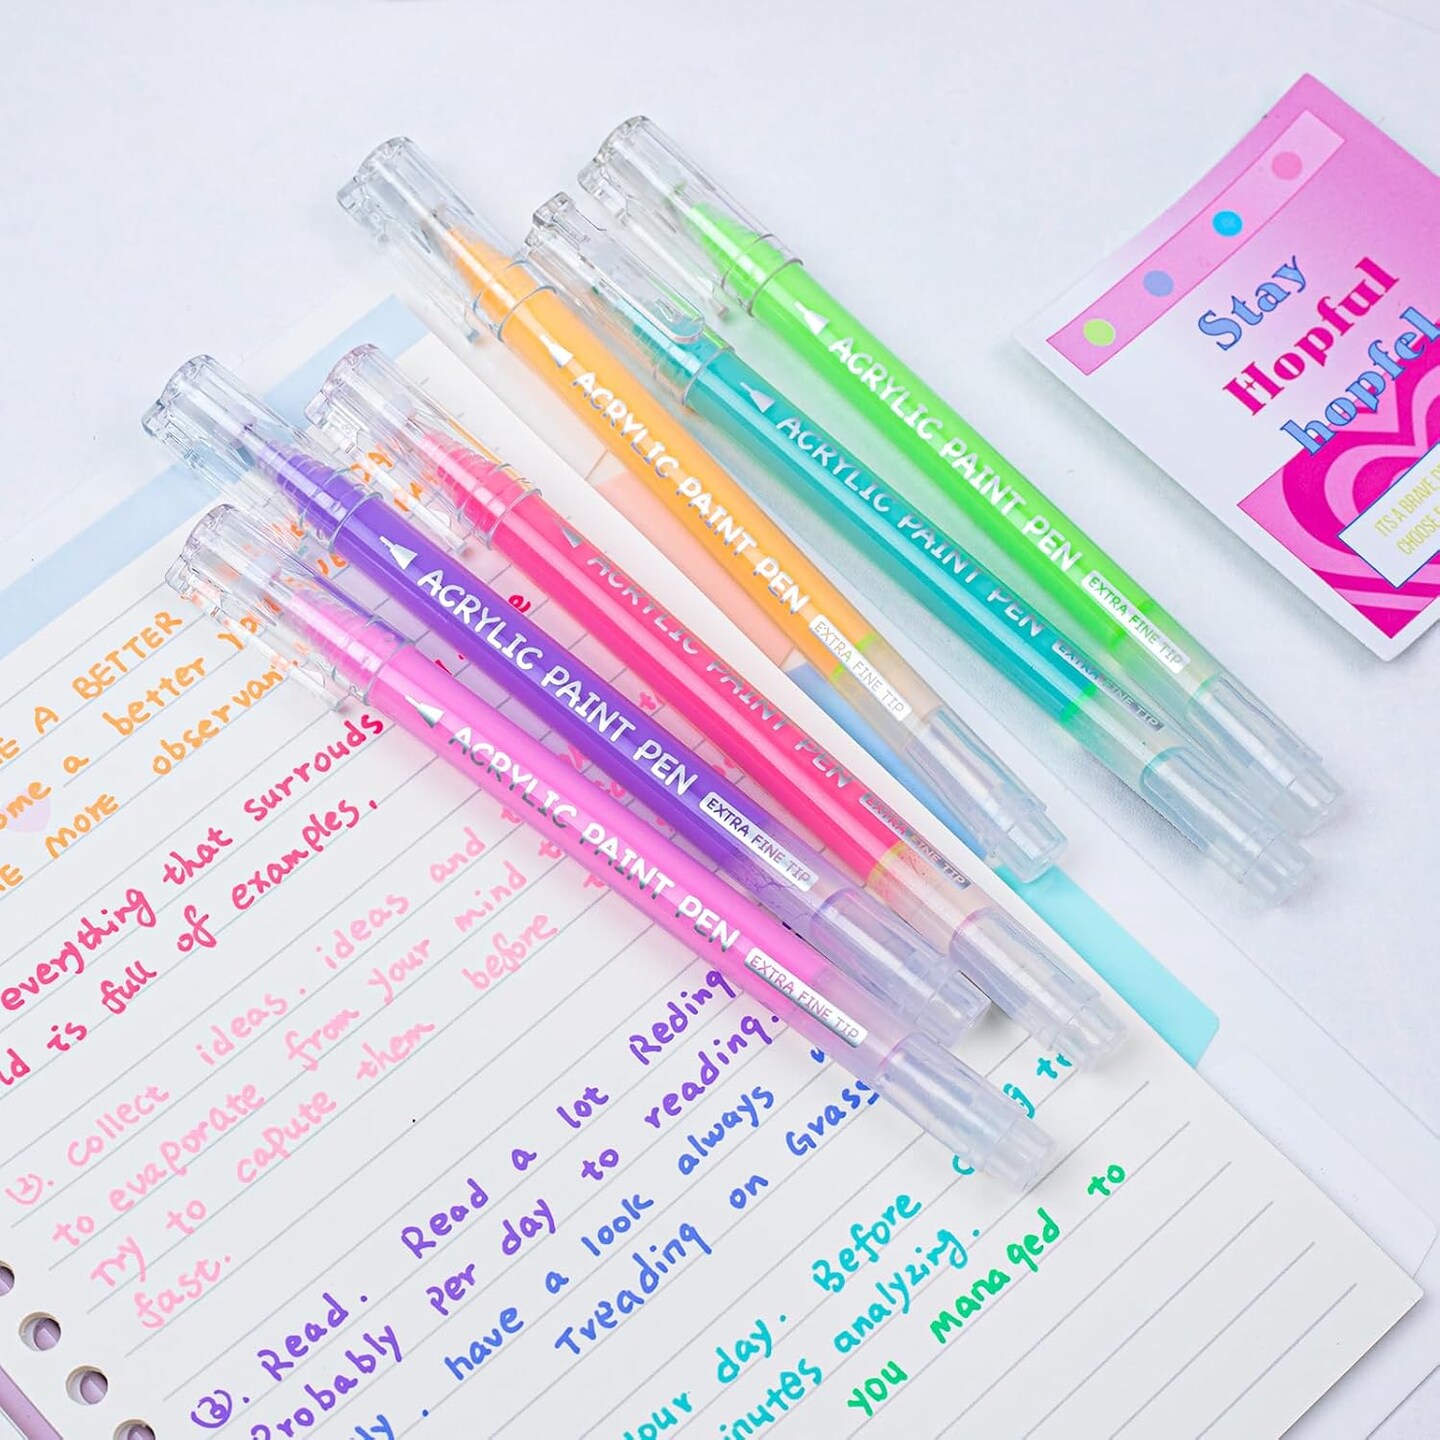 Stay
Hopful
hopfel
ITS A BRAVE
CHOOSE
ACRYLIC PAINT PEN EXTRA FINE TIP
ACRYLIC PAINT PEN EXTRA FINE TIP
ACRYLIC PAINT PEN EXTRA FINE TIP
ACRYLIC PAINT PEN EXTRA FINE TIP
ACRYLIC PAINT PEN EXTRA FINE TIP
ACRYLIC PAINT PEN EXTRA FINE TIP
A BETTER
a better
MORE observan
everything that surrouds
is full of examples,
(2). collect ideas. ideas and
to evaporate from your mind
Try to capute them before
fast.
(3). Read. Read a lot Reding
Probably Per day to reading.
have a look always
Treading on Grass
day. Before
analyzing.
you managed to